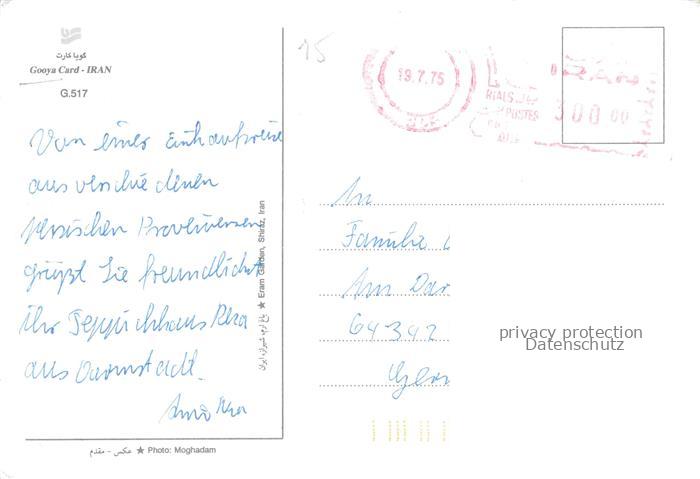 گویا کارت
Gooya Card - IRAN
G.517
15
19.7.75
IRAN
RIALS
POSTES
300 00
Von einer Einkaufsreise
aus verschiedenen
persischen Provinzen
grüßt Sie freundlichst
ihr Teppichhaus Reza
aus Darmstadt.
باغ ارم، شیراز، ایران ★ Eram Garden, Shiraz, Iran
An
Familie
Am Dar
64342
privacy protection
Datenschutz
عکس - مقدم ★ Photo: Moghadam